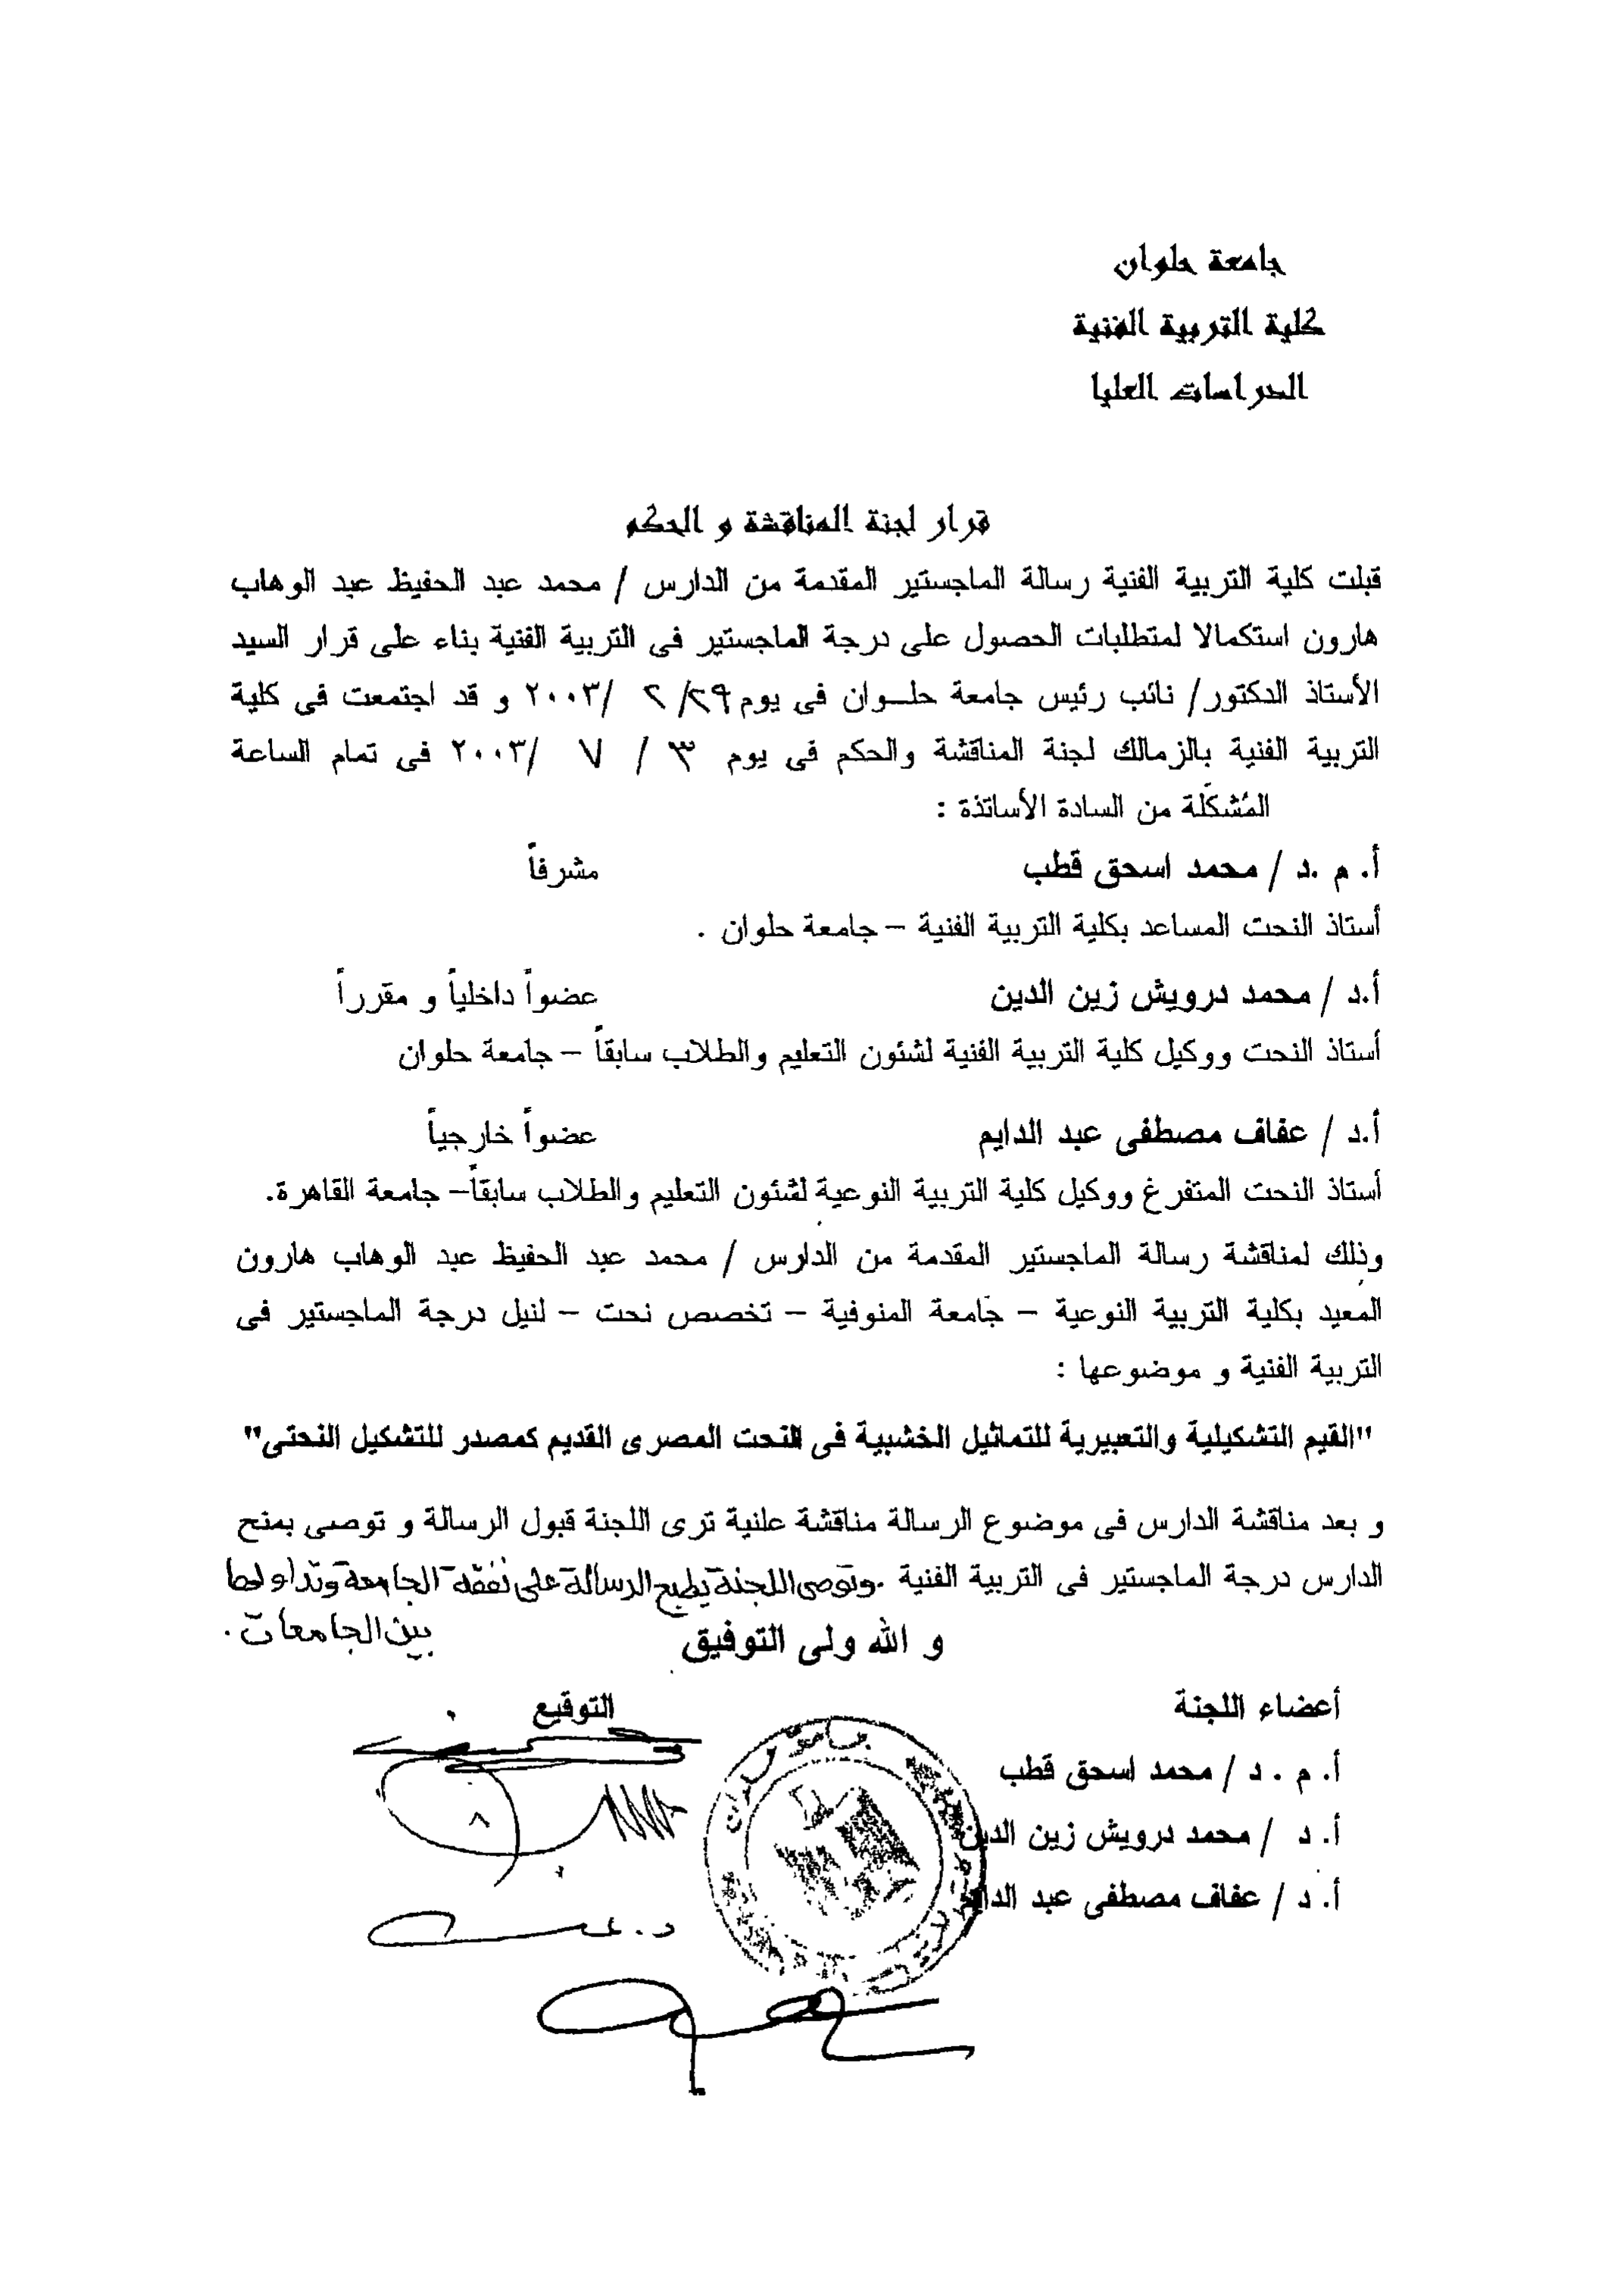 جامعة حلوان
كلية التربية الفنية
الدراسات العليا
قرار لجنة المناقشة و الحكم
قبلت كلية التربية الفنية رسالة الماجستير المقدمة من الدارس / محمد عبد الحفيظ عبد الوهاب
هارون استكمالا لمتطلبات الحصول على درجة الماجستير فى التربية الفنية بناء على قرار السيد
الأستاذ الدكتور/ نائب رئيس جامعة حلـوان فى يوم ٢٩/ ٢ /٢٠٠٣ و قد اجتمعت فى كلية
التربية الفنية بالزمالك لجنة المناقشة والحكم فى يوم ٣ / ٧ /٢٠٠٣ فى تمام الساعة
المُشكّلة من السادة الأساتذة :
أ. م .د / محمد اسحق قطب مشرفاً
أستاذ النحت المساعد بكلية التربية الفنية – جامعة حلوان .
أ.د / محمد درويش زين الدين عضواً داخلياً و مقرراً
أستاذ النحت ووكيل كلية التربية الفنية لشئون التعليم والطلاب سابقاً – جامعة حلوان
أ.د / عفاف مصطفى عبد الدايم عضواً خارجياً
أستاذ النحت المتفرغ ووكيل كلية التربية النوعية لشئون التعليم والطلاب سابقاً– جامعة القاهرة.
وذلك لمناقشة رسالة الماجستير المقدمة من الدارس / محمد عبد الحفيظ عبد الوهاب هارون
المعيد بكلية التربية النوعية – جامعة المنوفية – تخصص نحت – لنيل درجة الماجستير فى
التربية الفنية و موضوعها :
"القيم التشكيلية والتعبيرية للتماثيل الخشبية فى النحت المصرى القديم كمصدر للتشكيل النحتى"
و بعد مناقشة الدارس فى موضوع الرسالة مناقشة علنية ترى اللجنة قبول الرسالة و توصى بمنح
الدارس درجة الماجستير فى التربية الفنية .وتوصى اللجنة بطبع الرسالة على نفقة الجامعة وتداولها
بين الجامعات .
و الله ولى التوفيق
أعضاء اللجنة التوقيع
أ. م . د / محمد اسحق قطب
أ. د / محمد درويش زين الدين
أ. د / عفاف مصطفى عبد الدايم
جامعة حلوان